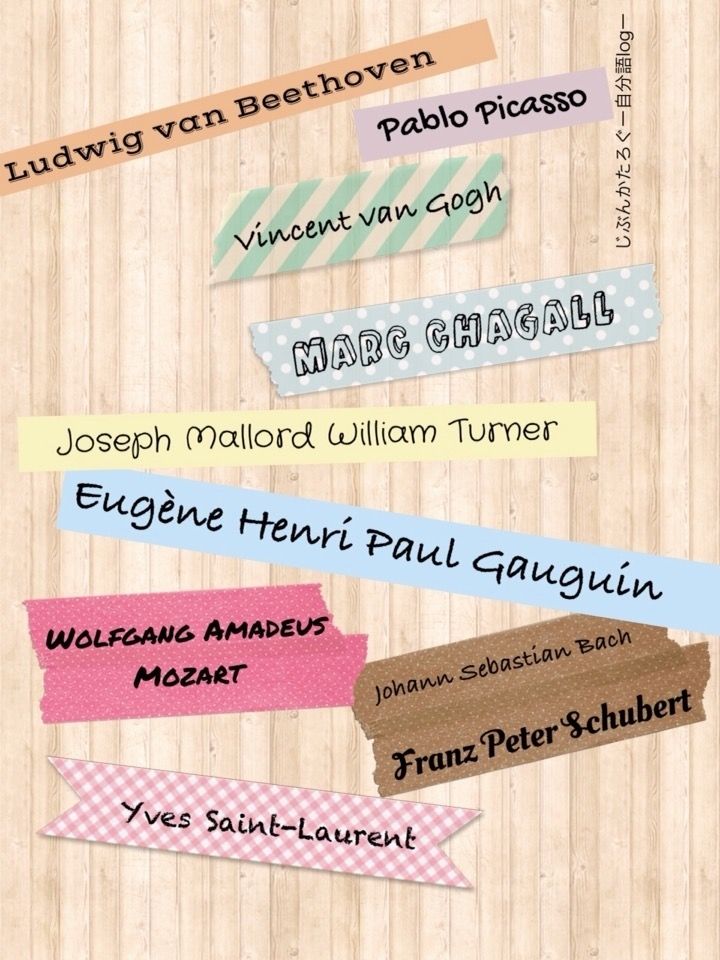 Ludwig van Beethoven
Pablo Picasso
じぶんかたろぐー自分語logー
Vincent van Gogh
MARC CHAGALL
Joseph Mallord William Turner
Eugène Henri Paul Gauguin
WOLFGANG AMADEUS
MOZART
Johann Sebastian Bach
Franz Peter Schubert
Yves Saint-Laurent